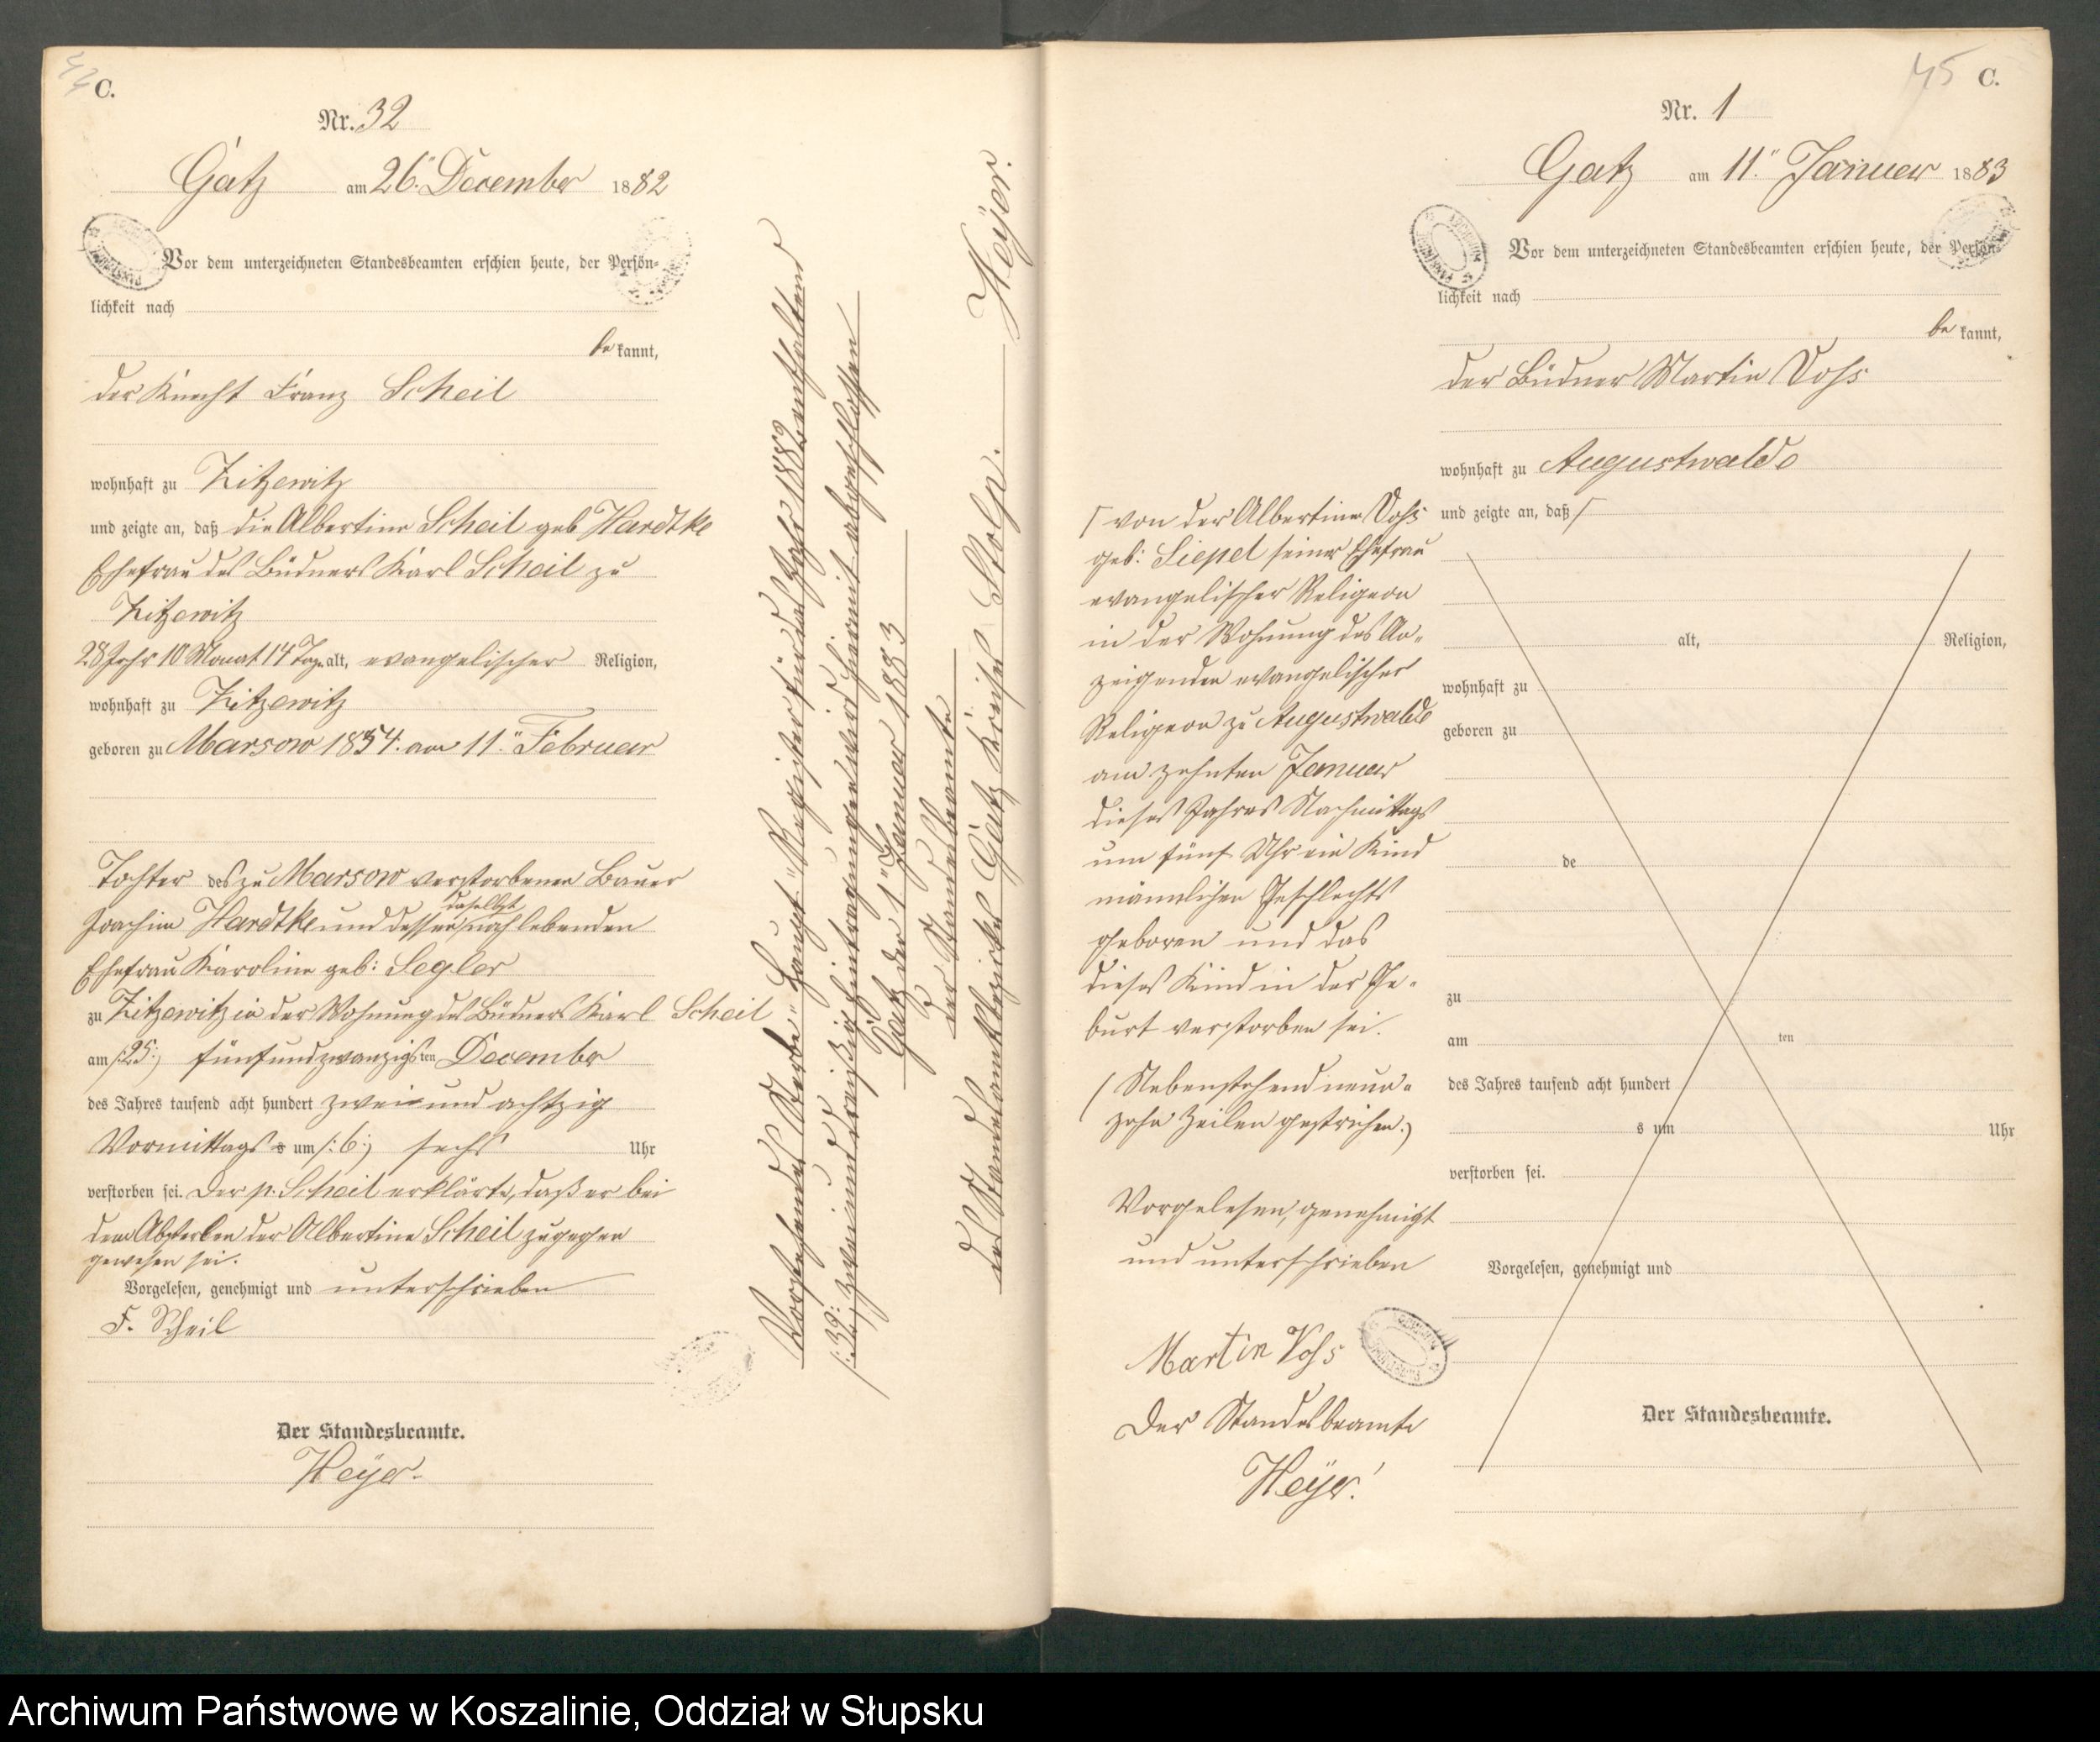 C.
Nr. 32
Gatz am 26.ⁿ December 1882
Vor dem unterzeichneten Standesbeamten erschien heute, der Persön=
lichkeit nach
be kannt,
der Knecht Franz Scheil
wohnhaft zu Zitzewitz
und zeigte an, daß die Albertine Scheil geb Hardtke
Ehefrau des Büdners Karl Scheil zu
Zitzewitz
28 Jahr 10 Monat 14 Tage alt, evangelischer Religion,
wohnhaft zu Zitzewitz
geboren zu Marsow 1854. am 11.ⁿ Februar
Tochter des zu Marsow verstorbenen Bauer
daselbst
Joachim Hardtke und dessen noch lebenden
Ehefrau Karoline geb: Segler
zu Zitzewitz in der Wohnung des Büdners Karl Scheil
am /:25:/ fünfundzwanzigsten December
des Jahres tausend acht hundert zwei und achtzig
Vormittags s um /:6:/ sechs Uhr
verstorben sei. Der p. Scheil erklärte, daß er bei
dem Absterben der Albertine Scheil zugegen
gewesen sei.
Vorgelesen, genehmigt und unterschrieben
F. Scheil
Der Standesbeamte.
Heyer.
Vorstehendes Sterbe- Haupt-Register für das Jahr 1882 enthaltend
/:32:/ zweiunddreißig Eintragungen wird hiermit abgeschlossen
Gatz den 1ⁿ Januar 1883
Der Standesbeamte
des Standesamtsbezirks Gatz Kreises Stolp. Heyer.
45 C.
Nr. 1
Gatz am 11.ⁿ Januar 1883
Vor dem unterzeichneten Standesbeamten erschien heute, der Persön=
lichkeit nach
be kannt,
der Büdner Martin Voss
wohnhaft zu Augustwalde
und zeigte an, daß /
/ von der Albertine Voss
geb: Siepel seiner Ehefrau
evangelischer Religion
in der Wohnung des An=
zeigenden evangelischer
Religion zu Augustwalde
am zehnten Januar
dieses Jahres Nachmittags
um fünf Uhr ein Kind
männlichen Geschlechts
geboren und das
dieses Kind in der Ge=
burt verstorben sei.
(Nebenstehend neun=
zehn Zeilen gestrichen.)
Vorgelesen, genehmigt
und unterschrieben
Martin Voss
Der Standesbeamte
Heyer.
alt, Religion,
wohnhaft zu
geboren zu
de
zu
am ten
des Jahres tausend acht hundert
s um Uhr
verstorben sei.
Vorgelesen, genehmigt und
Der Standesbeamte.
Archiwum Państwowe w Koszalinie, Oddział w Słupsku